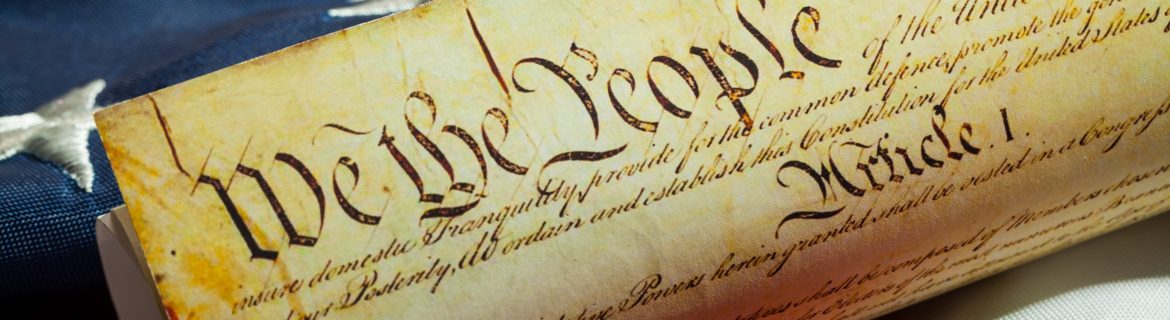 We the People of the Unite
insure domestic Tranquility, provide for the common defence, promote the gen
our Posterity, do ordain and establish this Constitution for the United States
Article. I.
Powers herein granted shall be vested in a Congress
shall be composed of Members chose